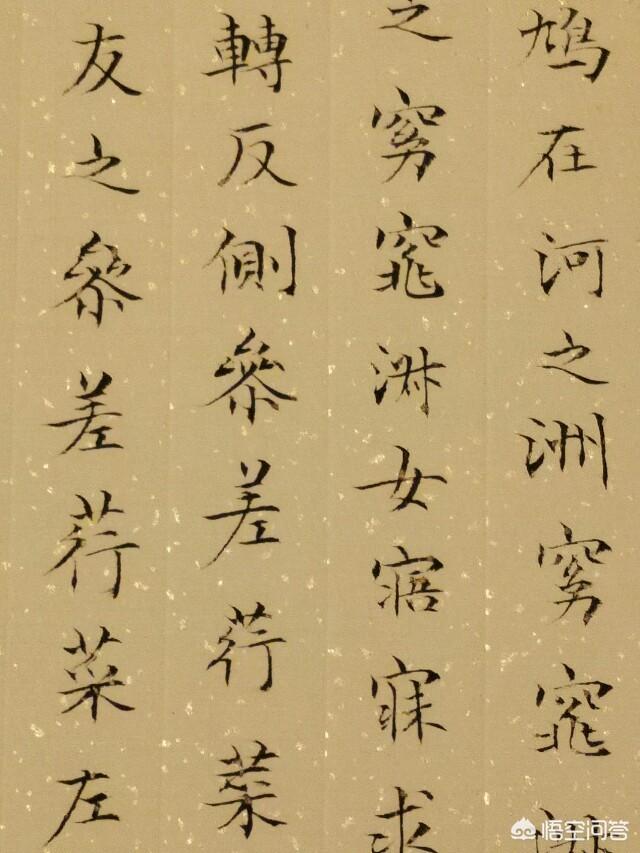 鳩在河之洲窈窕淑
之窈窕淑女寤寐求
轉反側參差荇菜
友之參差荇菜左
悟空问答